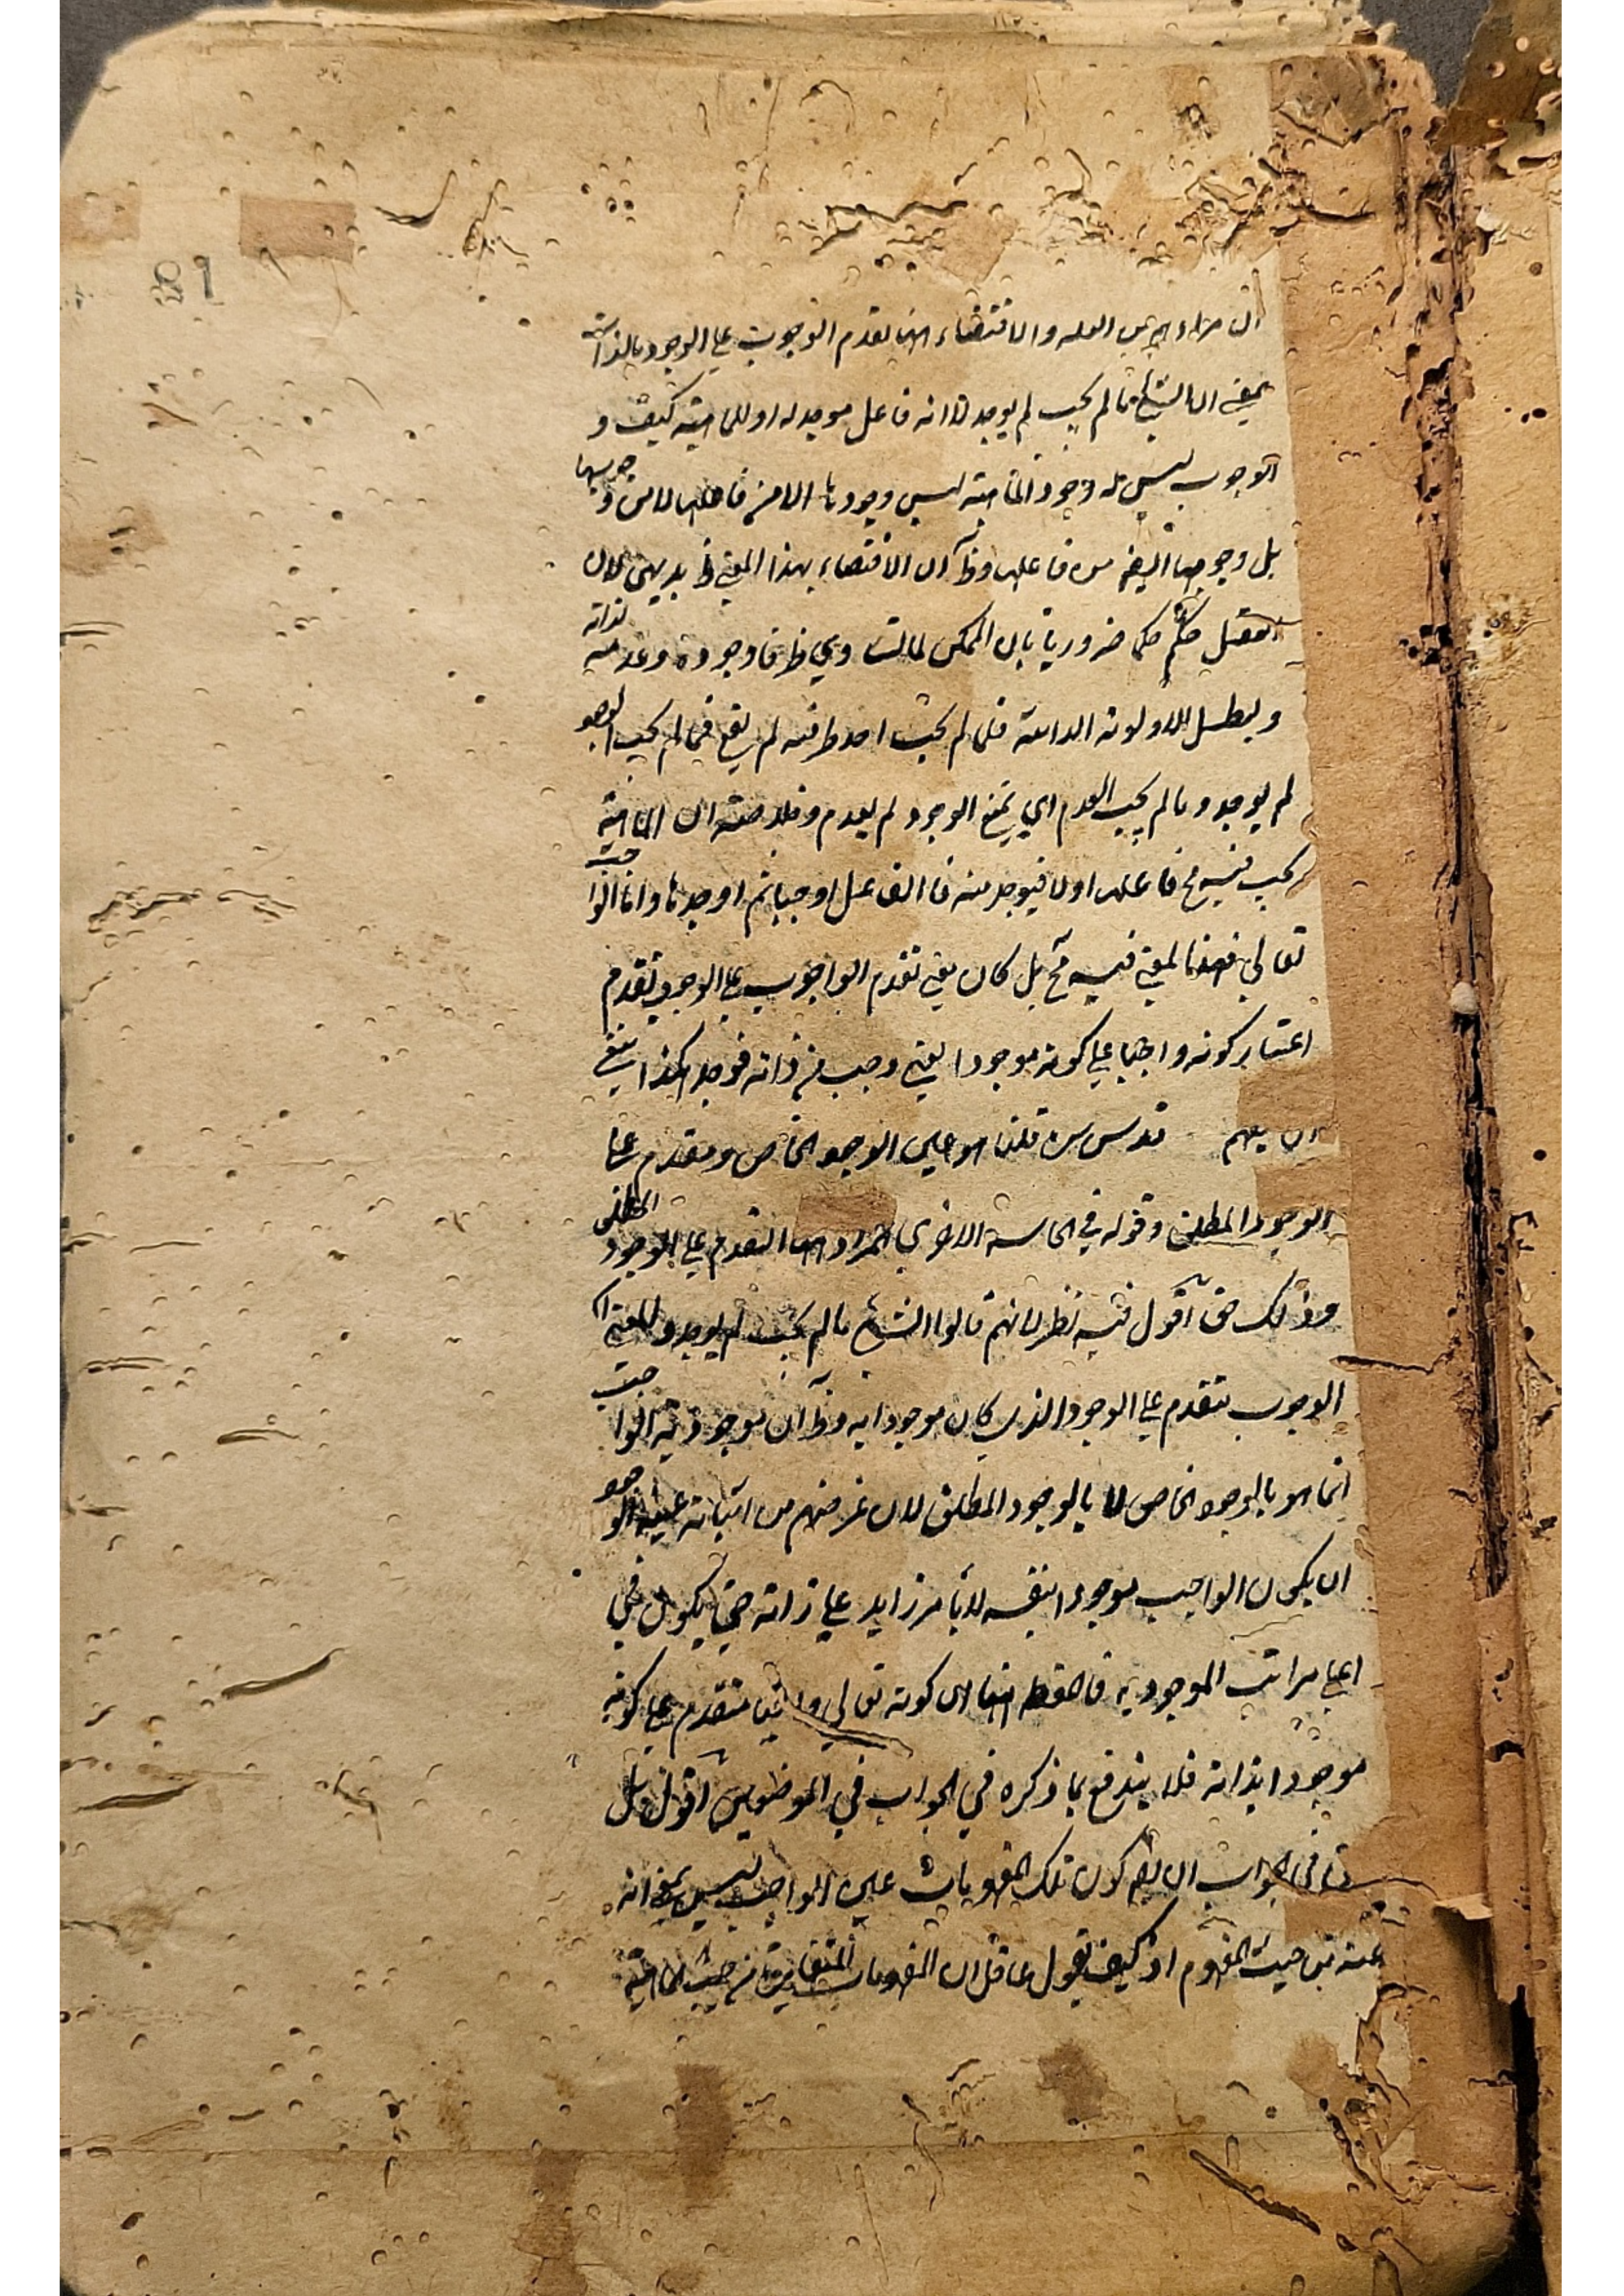 ان مراده من العلة والاقتضاء ان تقدم الوجوب على الوجود بالذات
بمعنى ان الشئ ما لم يجب لم يوجد لا انه فاعل موجد له او للماهية كيف و
الوجوب ليس له وجود الماهية ليس وجودها الا من فاعلها لا من وجوبها
بل وجوبها ايضا من فاعلها وظ ان الاقتضاء بهذا المعنى بديهي لان
العقل حكم حكما ضروريا بان الممكن لما تساوي طرفا وجوده وعدمه لذاته
وبطل الاولوية الذاتية فلما لم يجب احد طرفيه لم يقع فما لم يجب الوجو
لم يوجد وما لم يجب العدم اي يمتنع الوجود لم يعدم وخلاصته ان الماهية
يجب فيه فاعلها اولا فيوجد منه فالفاعل اوجبها ثم اوجدها واما الواجب
تعالى فهذا المعنى فيه مح بل كان معنى تقدم الواجوب على الوجود تقدم
اعتبار كونه واجبا على كونه موجودا يعني وجب من ذاته فوجد هكذا ينبغي
ان يفهم قدس سره قلنا هو عين الوجود الخاص ومقدم على
الوجود المطلق وقوله في الحاشية الاخرى المراد هنا التقدم على الوجود المطلق
وذلك حق اقول فيه نظر لانهم قالوا الشئ ما لم يجب لم يوجد والمعنى ان
الوجوب يتقدم على الوجود الذي كان موجودا به وظ ان موجودية الواجب
انما هو بالوجود الخاص لا بالوجود المطلق لان غرضهم من اثباته عينية الوجو
ان يكون الواجب موجودا بنفسه لا بامر زايد على ذاته حتى يكون في
اعلى مراتب الموجودية فالظ ان كونه تعالى واجبا متقدم على كونه
موجودا بذاته فلا يندفع بما ذكره في الجواب في الموضعين اقول بل
في الجواب ان يق كون تلك المفهومات عين الواجب ليس بمعنى انه
عينه من حيث المفهوم اذ كيف يقول عاقل ان المفهومات المتغايرة من حيث الماهية